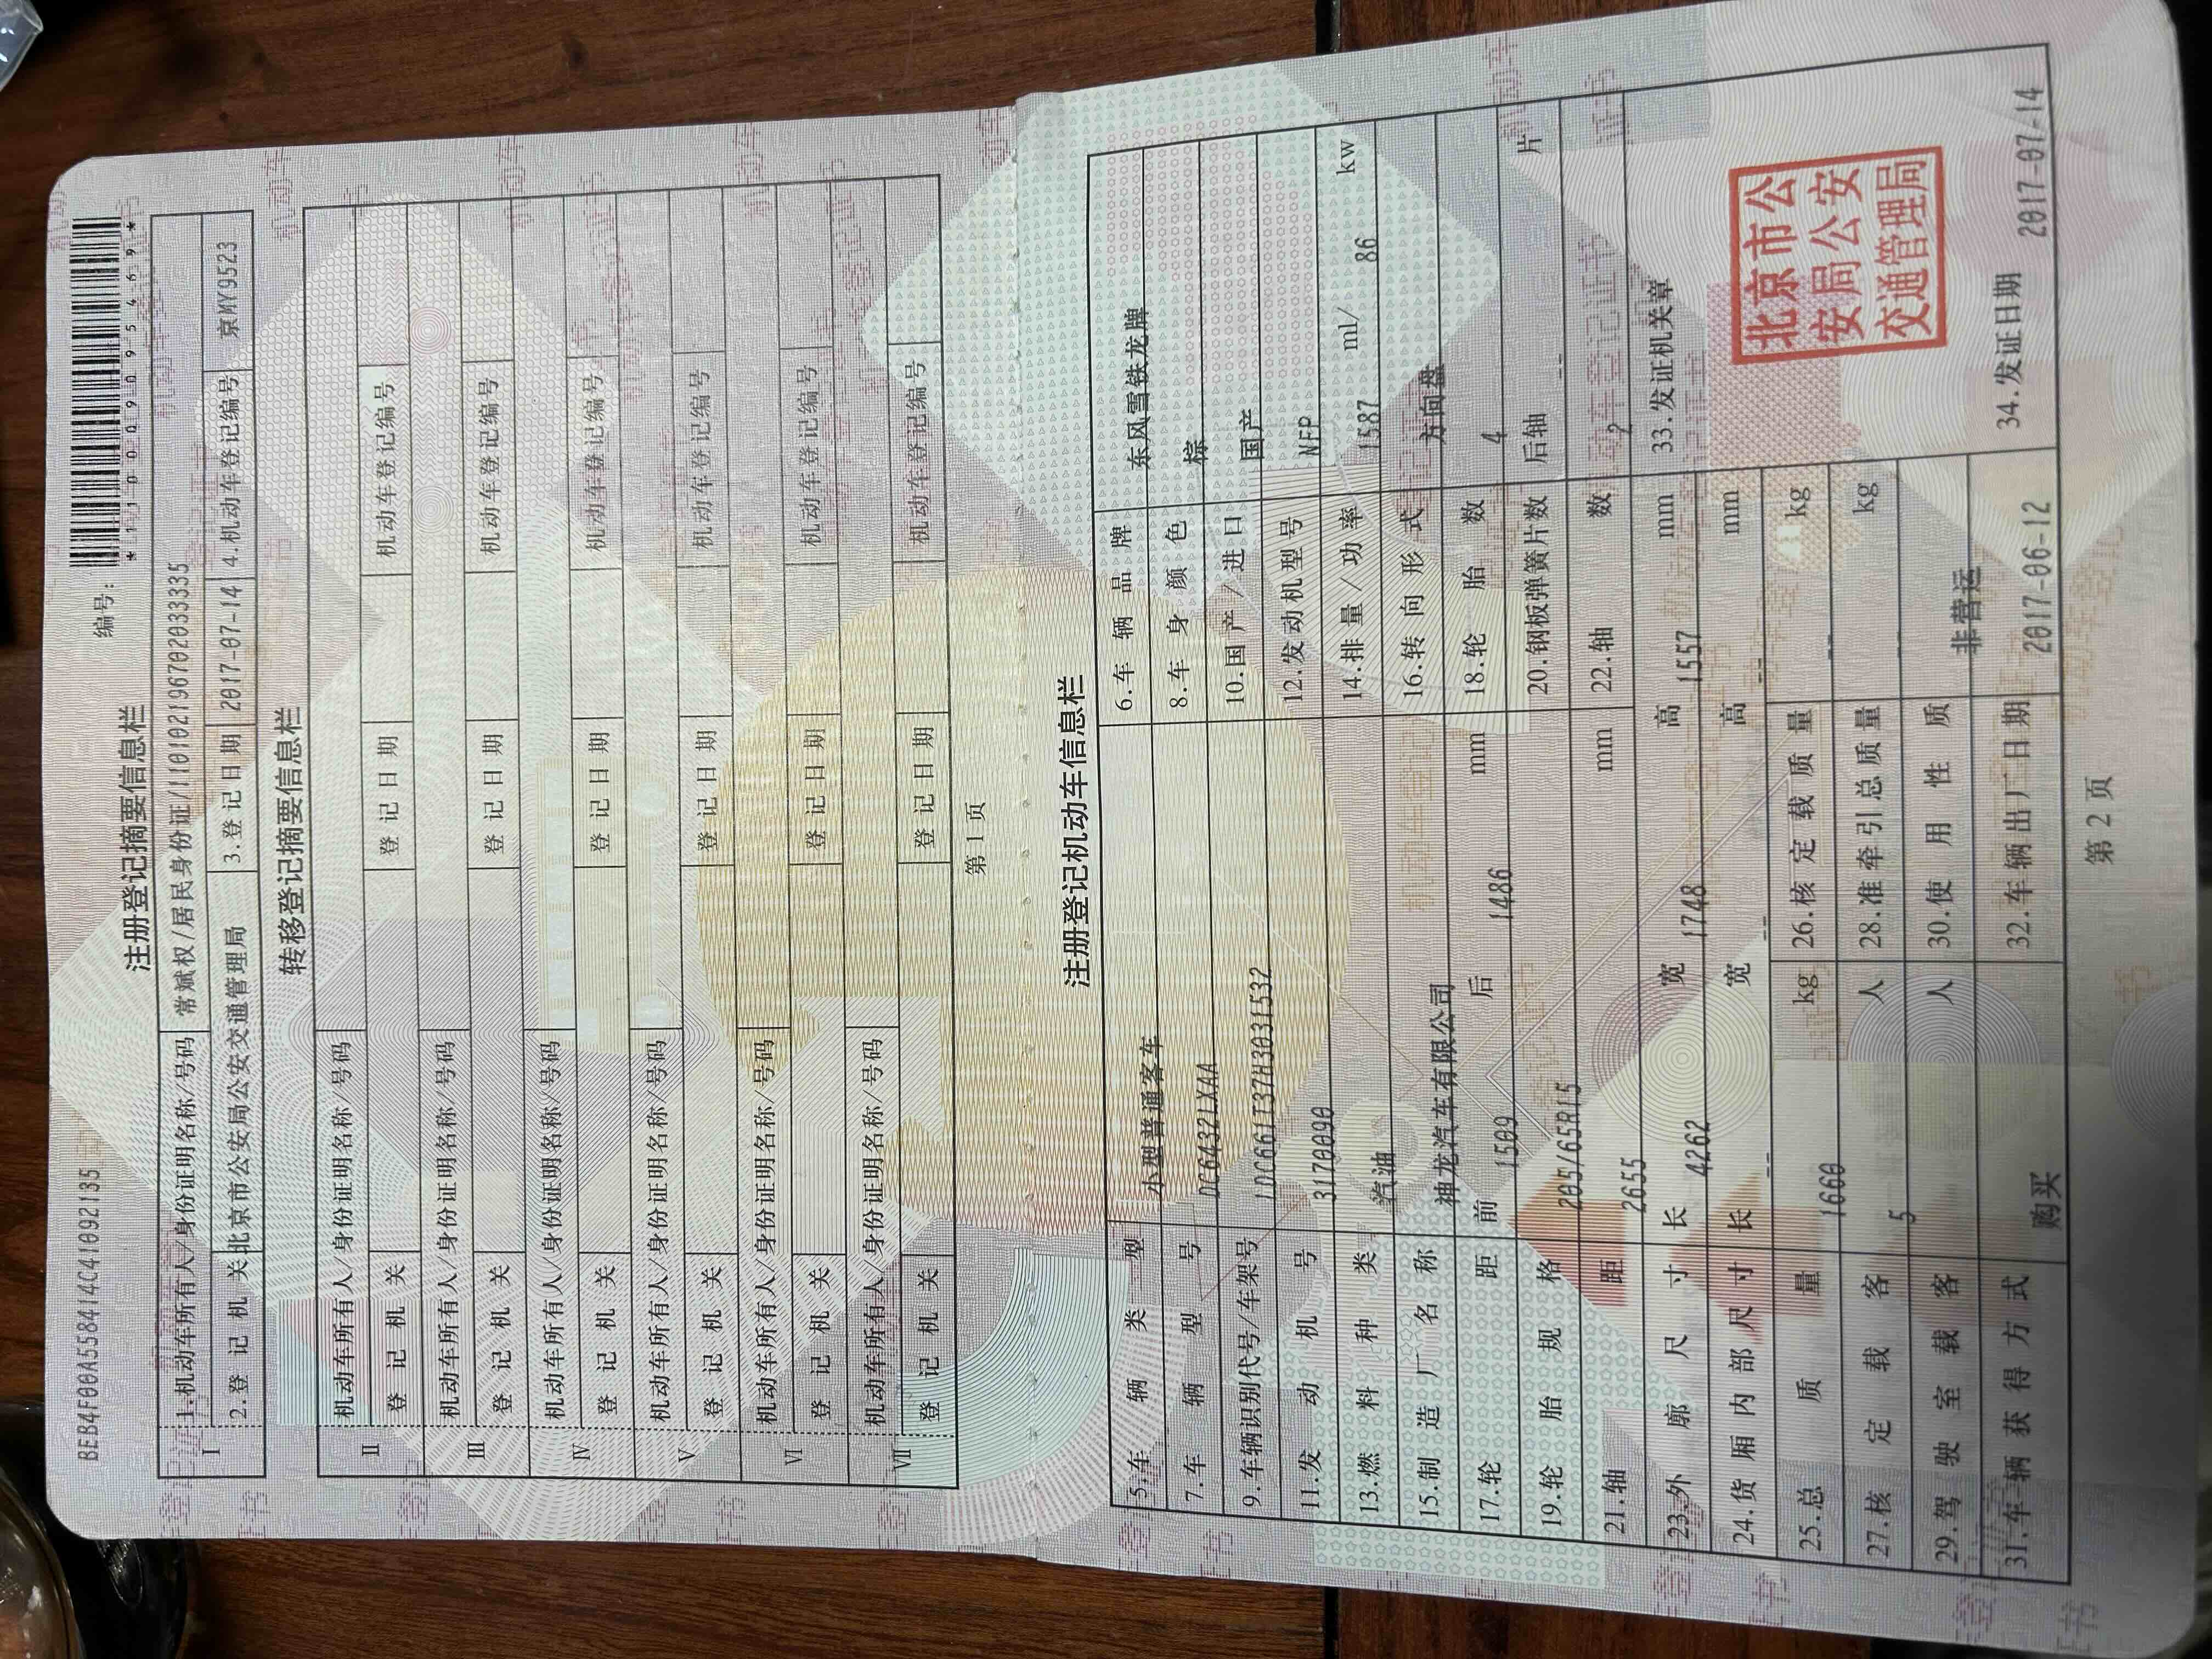 BEB4F00A55841C41092135
编号:
*110009095469*
注册登记摘要信息栏
I 1.机动车所有人/身份证明名称/号码 常斌权/居民身份证/110102196702033335
2.登记机关 北京市公安局公安交通管理局 3.登记日期 2017-07-14 4.机动车登记编号 京MY9523
转移登记摘要信息栏
II 机动车所有人/身份证明名称/号码
登记机关 登记日期 机动车登记编号
III 机动车所有人/身份证明名称/号码
登记机关 登记日期 机动车登记编号
IV 机动车所有人/身份证明名称/号码
登记机关 登记日期 机动车登记编号
V 机动车所有人/身份证明名称/号码
登记机关 登记日期 机动车登记编号
VI 机动车所有人/身份证明名称/号码
登记机关 登记日期 机动车登记编号
VII 机动车所有人/身份证明名称/号码
登记机关 登记日期 机动车登记编号
第1页
注册登记机动车信息栏
5.车辆类型 小型普通客车 6.车辆品牌 东风雪铁龙牌
7.车辆型号 DC6432LXAA 8.车身颜色 棕
9.车辆识别代号/车架号 LDC661T37H3031532 10.国产/进口 国产
11.发动机号 3170090 12.发动机型号 NFP
13.燃料种类 汽油 14.排量/功率 1587 ml/ 86 kw
15.制造厂名称 神龙汽车有限公司 16.转向形式 方向盘
17.轮距 前 1509 后 1486 mm 18.轮胎数 4
19.轮胎规格 205/65R15 20.钢板弹簧片数 后轴 -- 片
21.轴距 2655 mm 22.轴数 2
23.外廓尺寸 长 4262 宽 1748 高 1557 mm 33.发证机关章
24.货厢内部尺寸 长 -- 宽 -- 高 -- mm
25.总质量 1660 kg 26.核定载质量 -- kg
27.核定载客 5 人 28.准牵引总质量 -- kg
29.驾驶室载客 人 30.使用性质 非营运
31.车辆获得方式 购买 32.车辆出厂日期 2017-06-12 34.发证日期 2017-07-14
北京市公
安局公安
交通管理局
第2页